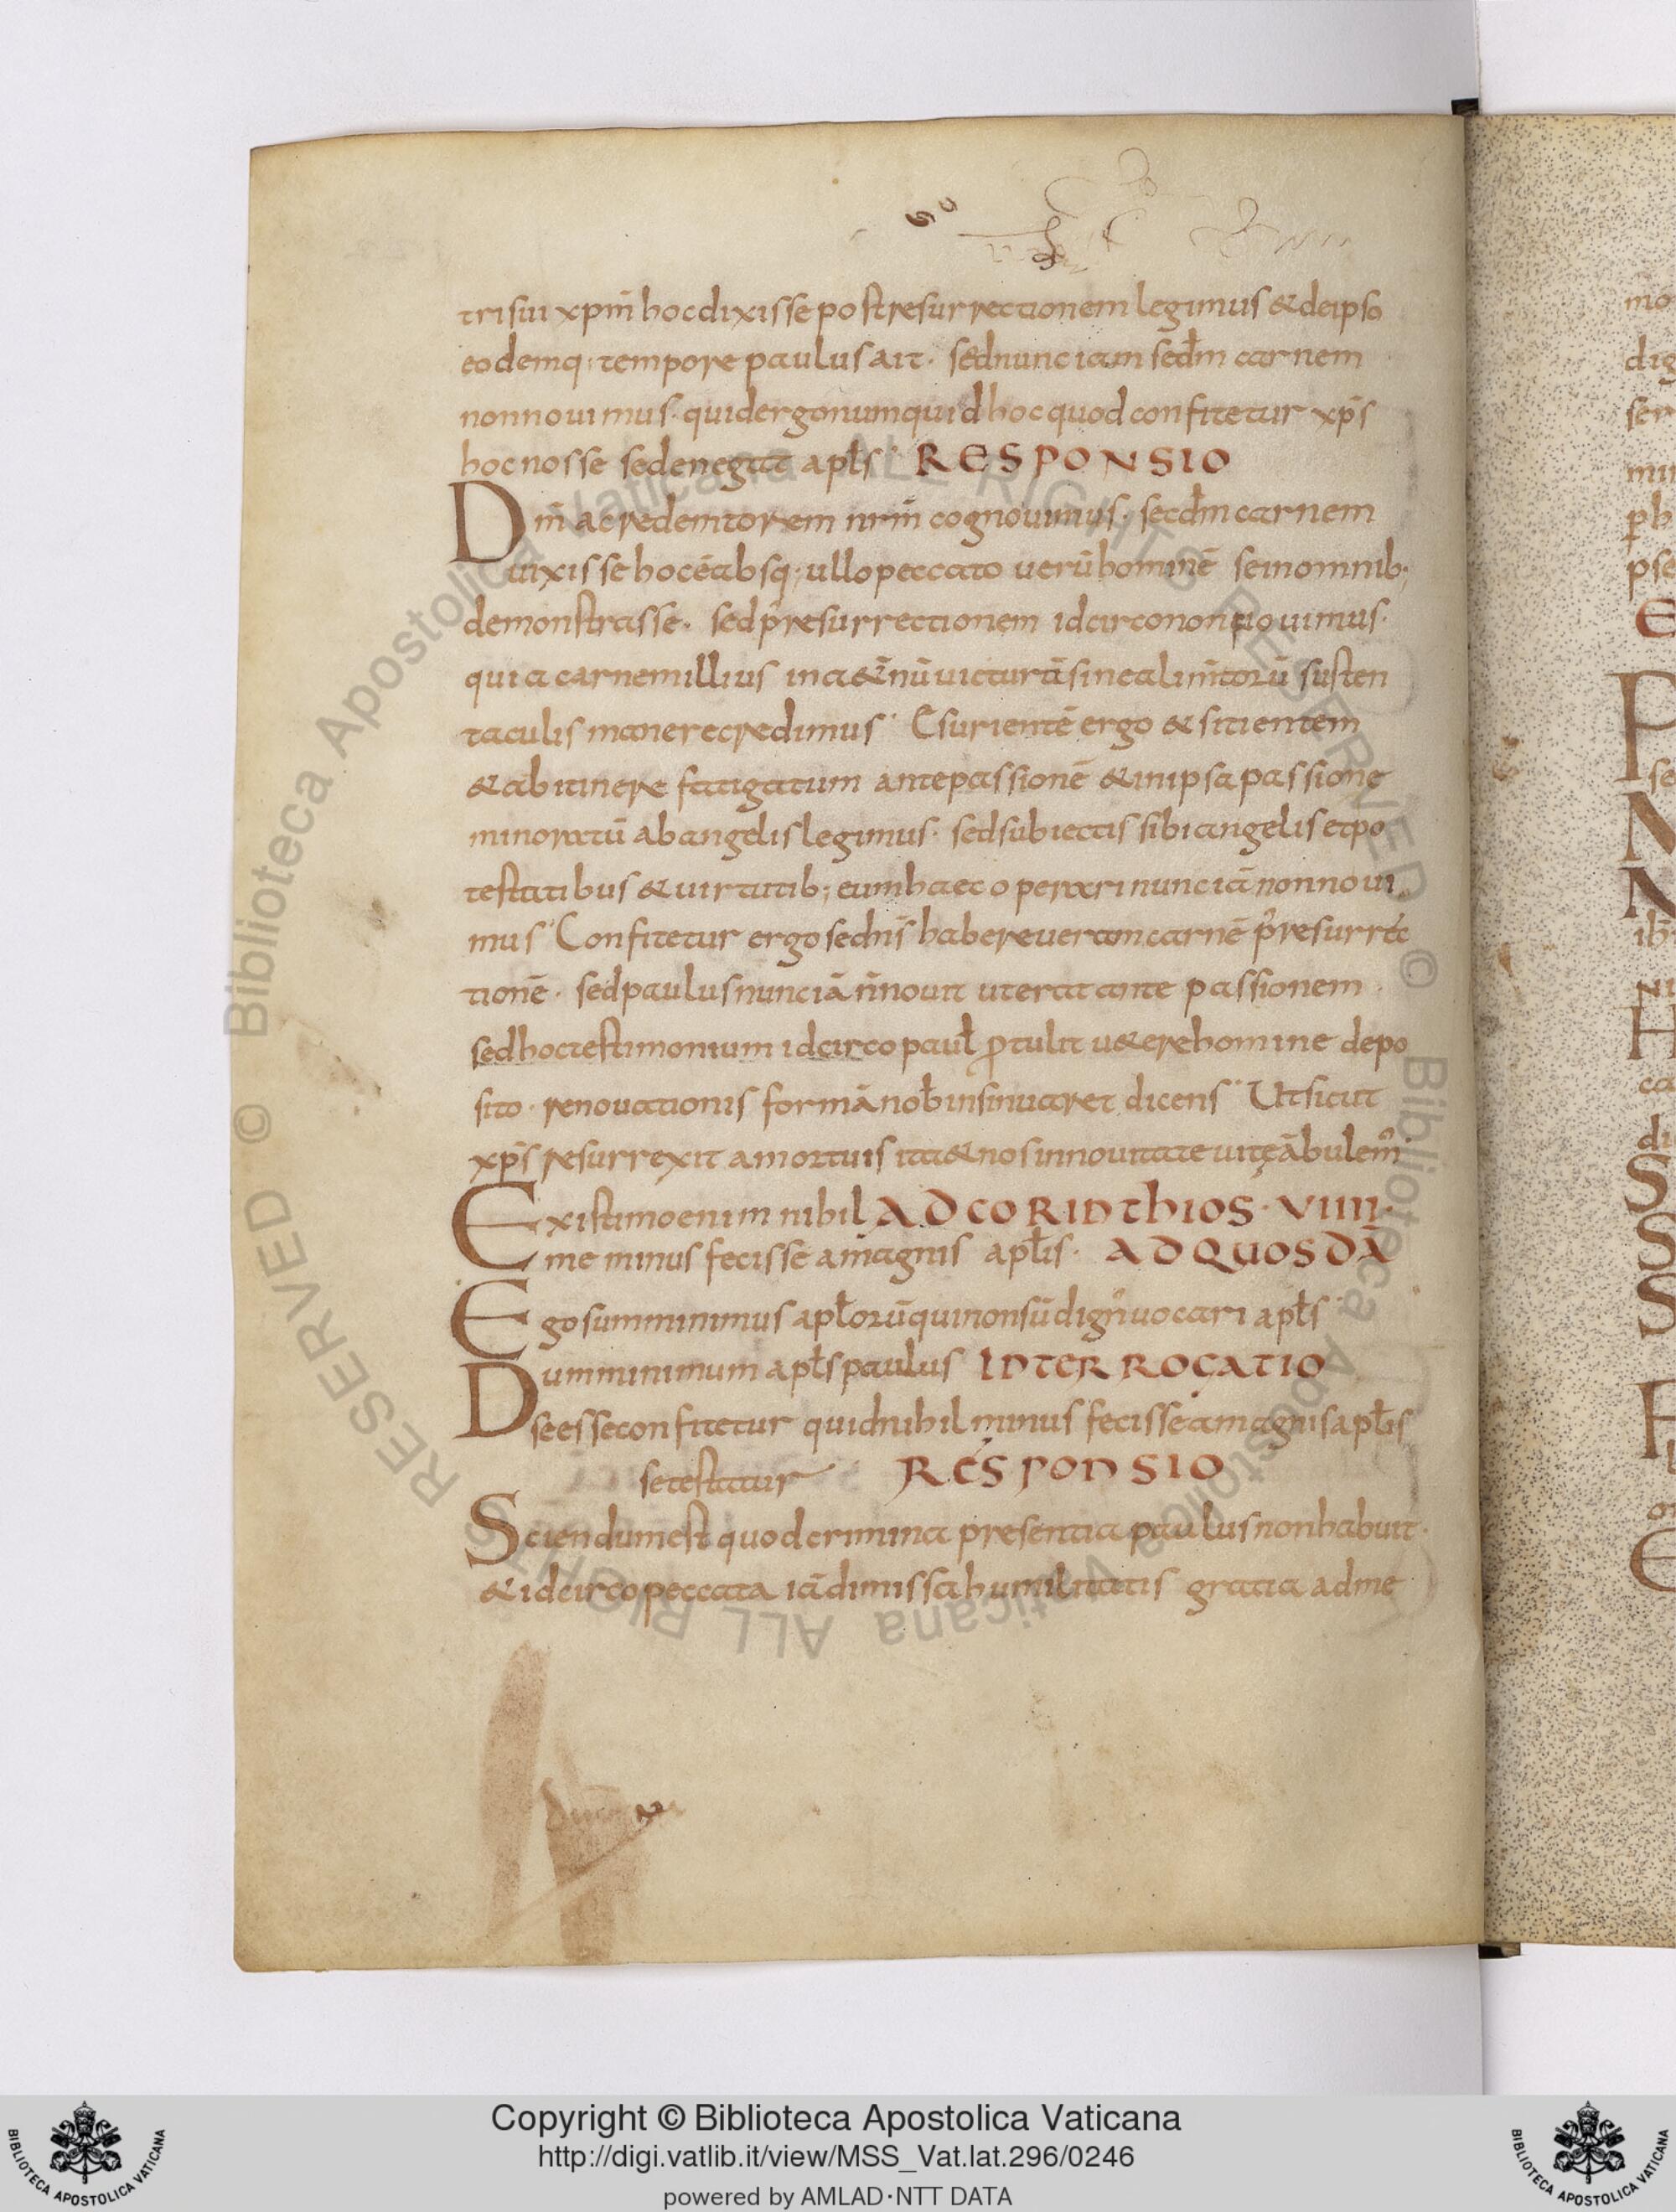 trisui xp̄m hoc dixisse post resurrectionem legimus & de ipso
eodemq; tempore paulus ait· sed nunc iam sed̄m carnem
non nouimus· quid ergo numquid hoc quod confitetur xp̄s
hoc nosse se denegat apl̄s· RESPONSIO
Dn̄m ac redemtorem nr̄m cognouimus· secd̄m carnem
uixisse hoc ē absq; ullo peccato uerū hominē se in omnib;
demonstrasse· sed p̄ resurrectionem idcirco non nouimus·
quia carnem illius in a&̄nū uicturā sine alim̄torū susten
taculis manere credimus· Esurientē ergo & sitientem
& ab itinere fatigatum ante passionē & in ipsa passione
minoratū ab angelis legimus· sed subiectis sibi angelis et po
testatibus & uirtutib; eum haec operari nunc iā non noui
mus· Confitetur ergo se dn̄s habere ueram carnē p̄ resurrec
tionē· sed paulus nunc iā n̄ nouit ut erat ante passionem·
sed hoc testimonium idcirco paul̄ ꝓtulit u&ere homine depo
sito· renouationis formā nob̄ insinuaret dicens· Ut sicut
xp̄s resurrexit a mortuis ita & nos in nouitate uitę ābulem᾽
Existimo enim nihil AD CORINTHIOS· VIIII·
me minus fecisse a magnis apl̄is· AD QUOSDĀ
Ego sum minimus apl̄orū qui non sū dign᾽ uocari apl̄s·
Dum minimum apl̄s paulus INTERROGATIO
se esse confitetur quid nihil minus fecisse a magnis apl̄is
se testatur RESPONSIO
Sciendum est quod crimina presentia paulus non habuit·
& idcirco peccata iā dimissa humilitatis gratia ad me
Copyright © Biblioteca Apostolica Vaticana
http://digi.vatlib.it/view/MSS_Vat.lat.296/0246
powered by AMLAD·NTT DATA
BIBLIOTECA APOSTOLICA VATICANA
BIBLIOTECA APOSTOLICA VATICANA